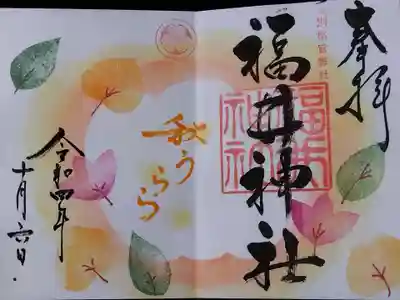 奉拝
別格官幣社
福井神社
福井神社
秋うらら
令和四年
十月六日.